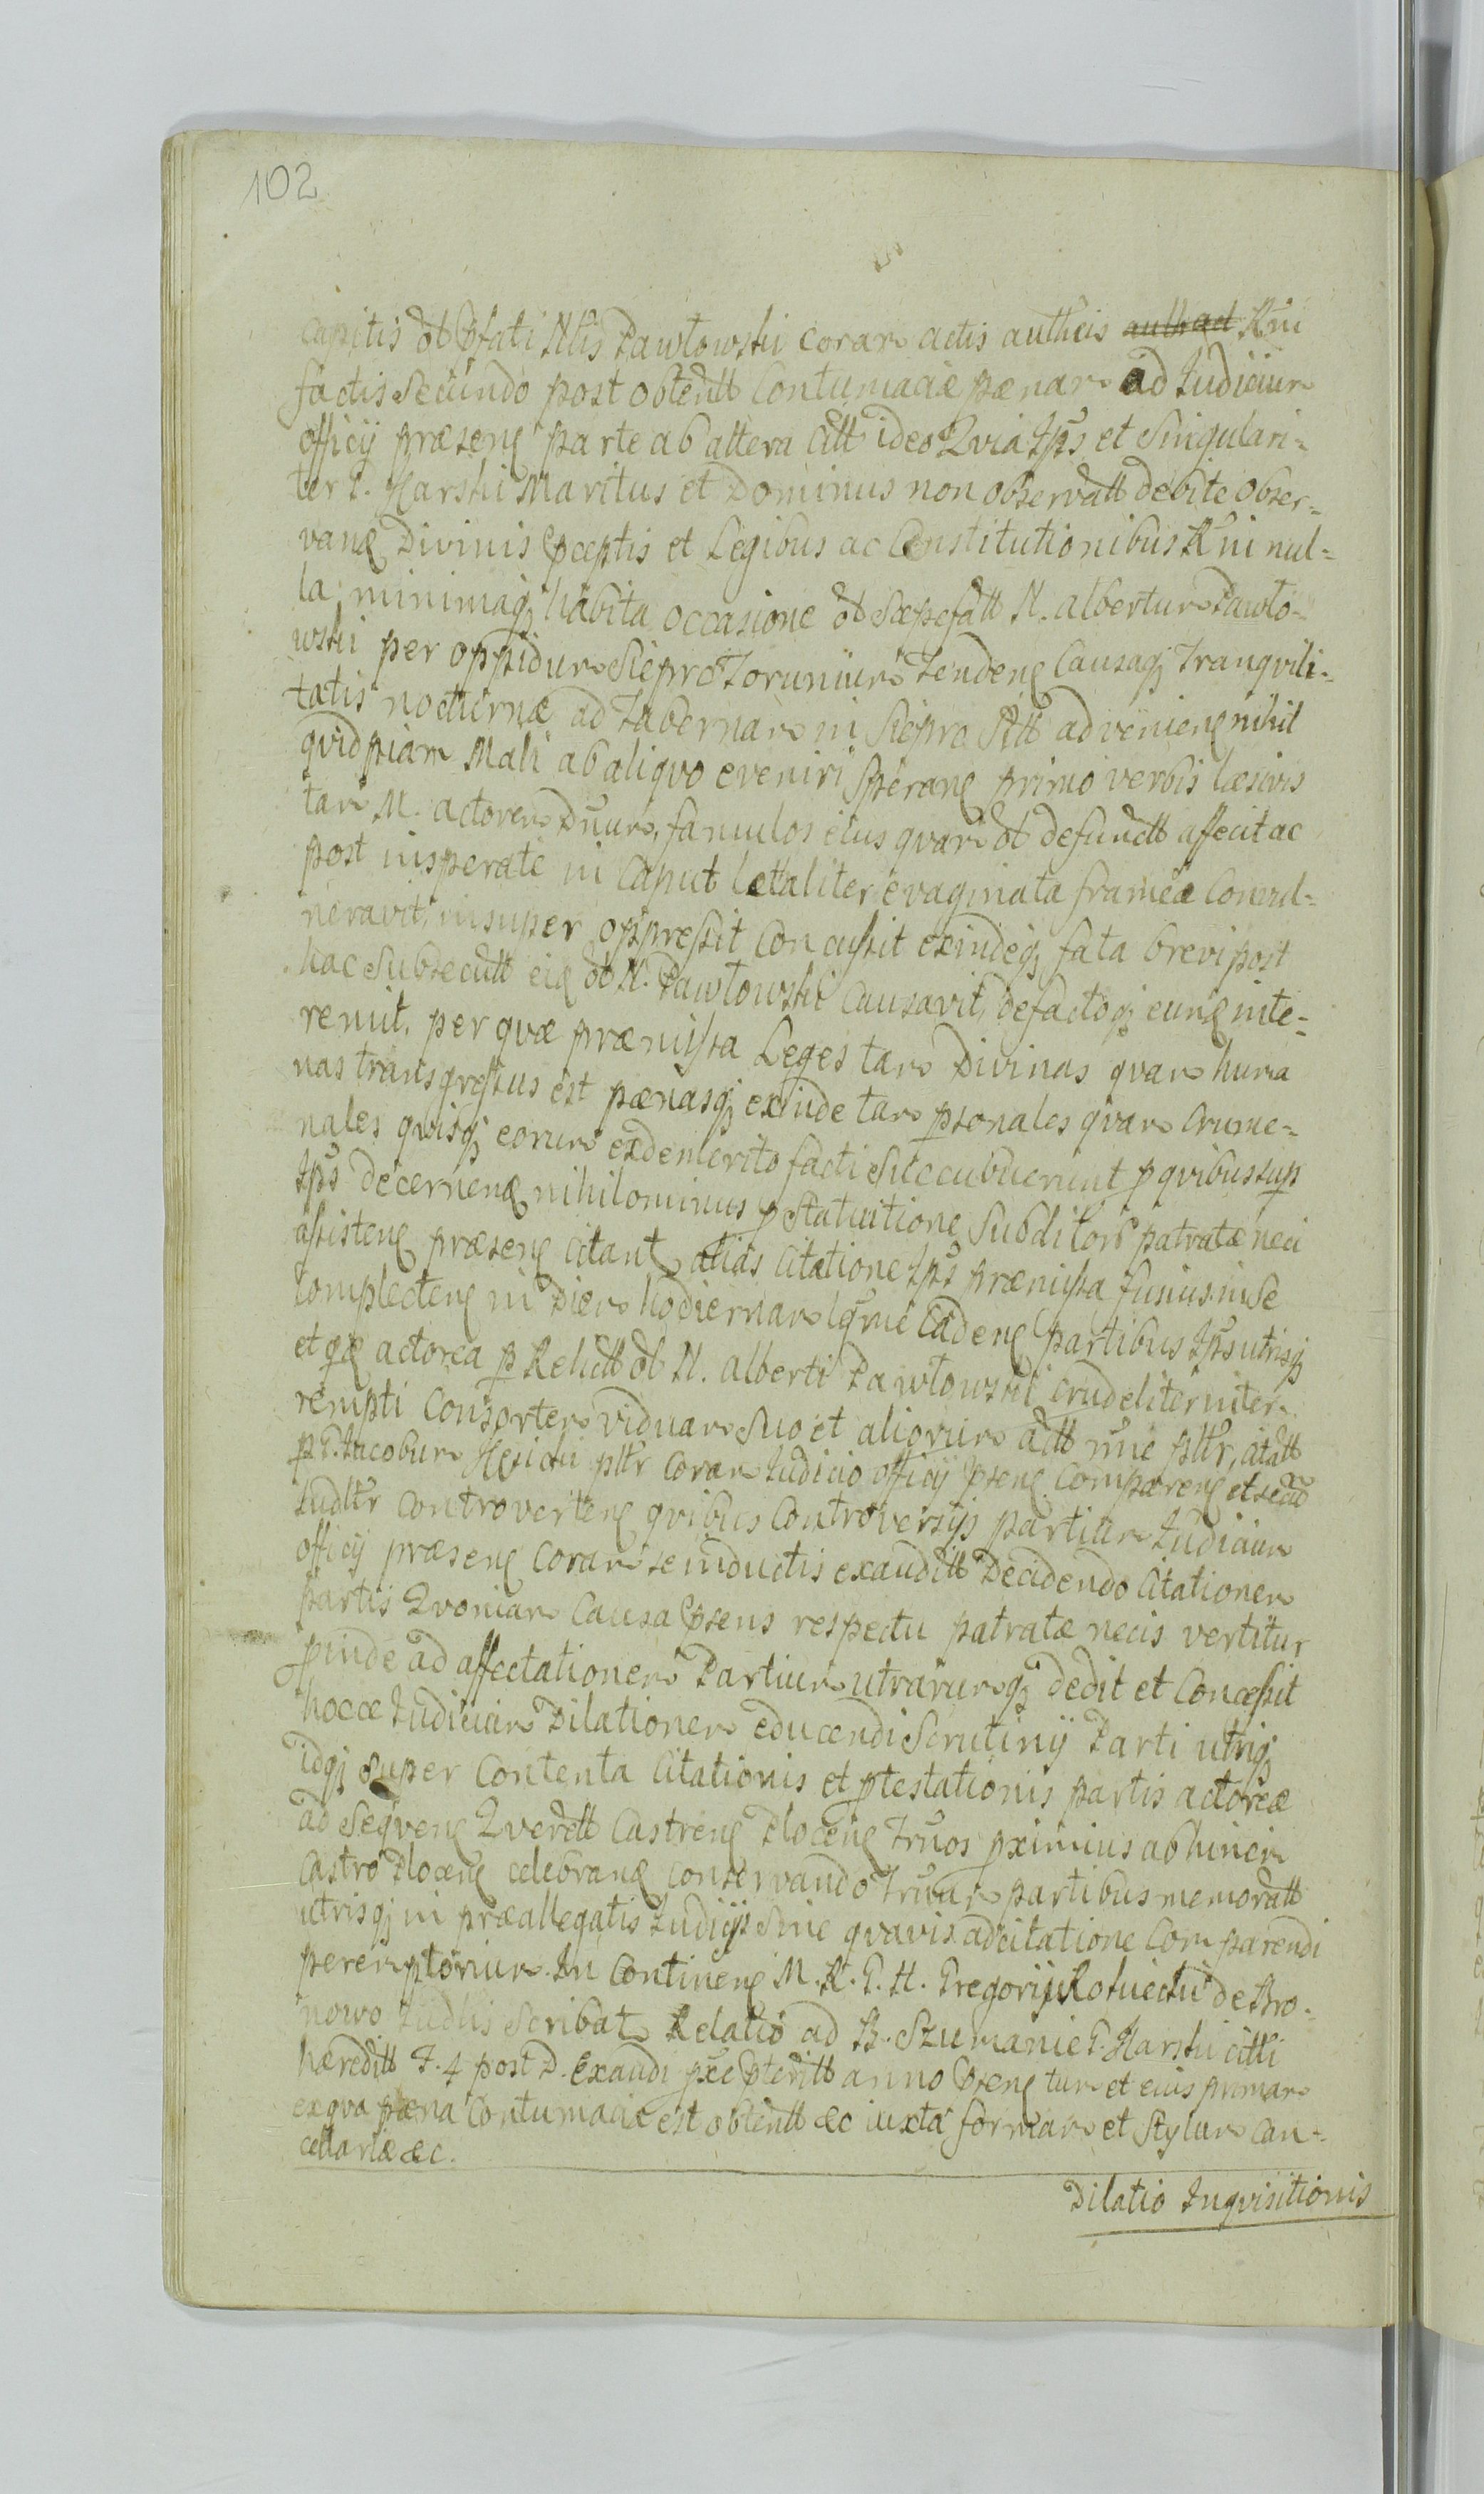 102
Capitis ol Pfati Nlis Pawłowski coram actis authcis authact Rni
factis Secundo post obtentt Contumaciæ pænam ad Judicium
officij præsens parte ab altera Citt ideo Qvia Ips et Singulari-
ter G. Karski Maritus et Dominus non observatt debite obser-
vans Divinis Pceptis et Legibus ac Constitutionibus Rni nul-
la minimaq habita occasione ol Sæpefatt N. Albertum Pawło-
wski per oppidum Siepro Toruniùm Tendens Causaq Tranqvili-
tatis nocturnæ ad Tabernam in Siepro Stt adveniens nihil
qvidpiam Mali ab aliqvo eveniri Sperans primo verbis læsivis
tam N. actorem Dnum, famulos eius qvam ol defunctt affecit ac
post insperate in Caput lætaliter evaginata framea Convul-
neravit, insuper oppressit Concussit exindeq fata brevi post
hac Subsecutt eis ol N. Pawłowski Causavit, defactoq eunq inte-
remit, per qvæ præmissa Leges tam Divinas qvam huma
nas transgressus est pænasq exinde tam psonales qvam Crume-
nales qvisq eorum exdemerito facti Succubuerunt p qvibus sup
Ips decernens nihilominus p Statuitione Subditori patratæ neci
assistens præsens Citant alias Citatione Ips præmissa fusius in Se
Complectens in Diem hodiernam lgme Cadens Partibus Ips utrisq
et qd actorea p Relictt ol N. Alberti Pawłowski Crudeliter inter-
rempti Consortem viduam Suo et aliorum actt nne pltr, Citatt
p G. Jacobum Hesicki pltr Coram Judicio officij Psens Comparens et secd
Judltr Controvertens qvibus Controversijs partium Judicium
officij præsens Coram se inductis exauditt Decidendo Citationem
partis Qvoniam Causa Psens respectu patratæ necis vertitur,
pinde ad affectationem Partium utrarumq dedit et Concessit
hocce Judicium Dilationem educendi Scrutinij Parti utriq
idq Super Contenta Citationis et ptestationis partis actoreæ
ad Seqvens Qverell Castrens Plocens Trnos pximius abhinc in
Castro Plocens celebrans conservando Trnum partibus memoratt
utrisq in præallegatis Judicijs Sine qvavis adcitatione Comparendi
peremptorium. In Continens M. R. G. H. Gregorij Rościecki de Bro-
nowo Judlis Scribat Relatio ad B. Szumanie G. Karski citti
hæreditt F. 4 post D. Exaudi pxe Pteritt anno Psens tum et eius primam
ex qva pæna Contumaciæ est obtentt &c iuxta formam et Stylum Can-
cellariæ &c.
Dilatio Inqvisitionis